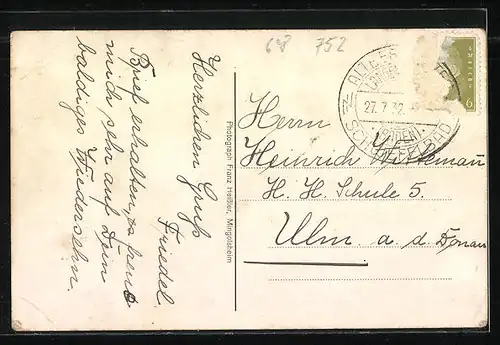 68 752
Herzlichen Gruß
Friedel.
Brief erhalten, es freut
mich sehr auf Dein
baldiges Wiedersehn.
Photograph Franz Heißler, Mingolsheim
27.7.32
(BADEN)
SCHWEFELBAD
6
Herrn
Heinrich
H. H. Schule 5.
Ulm a. d. Donau